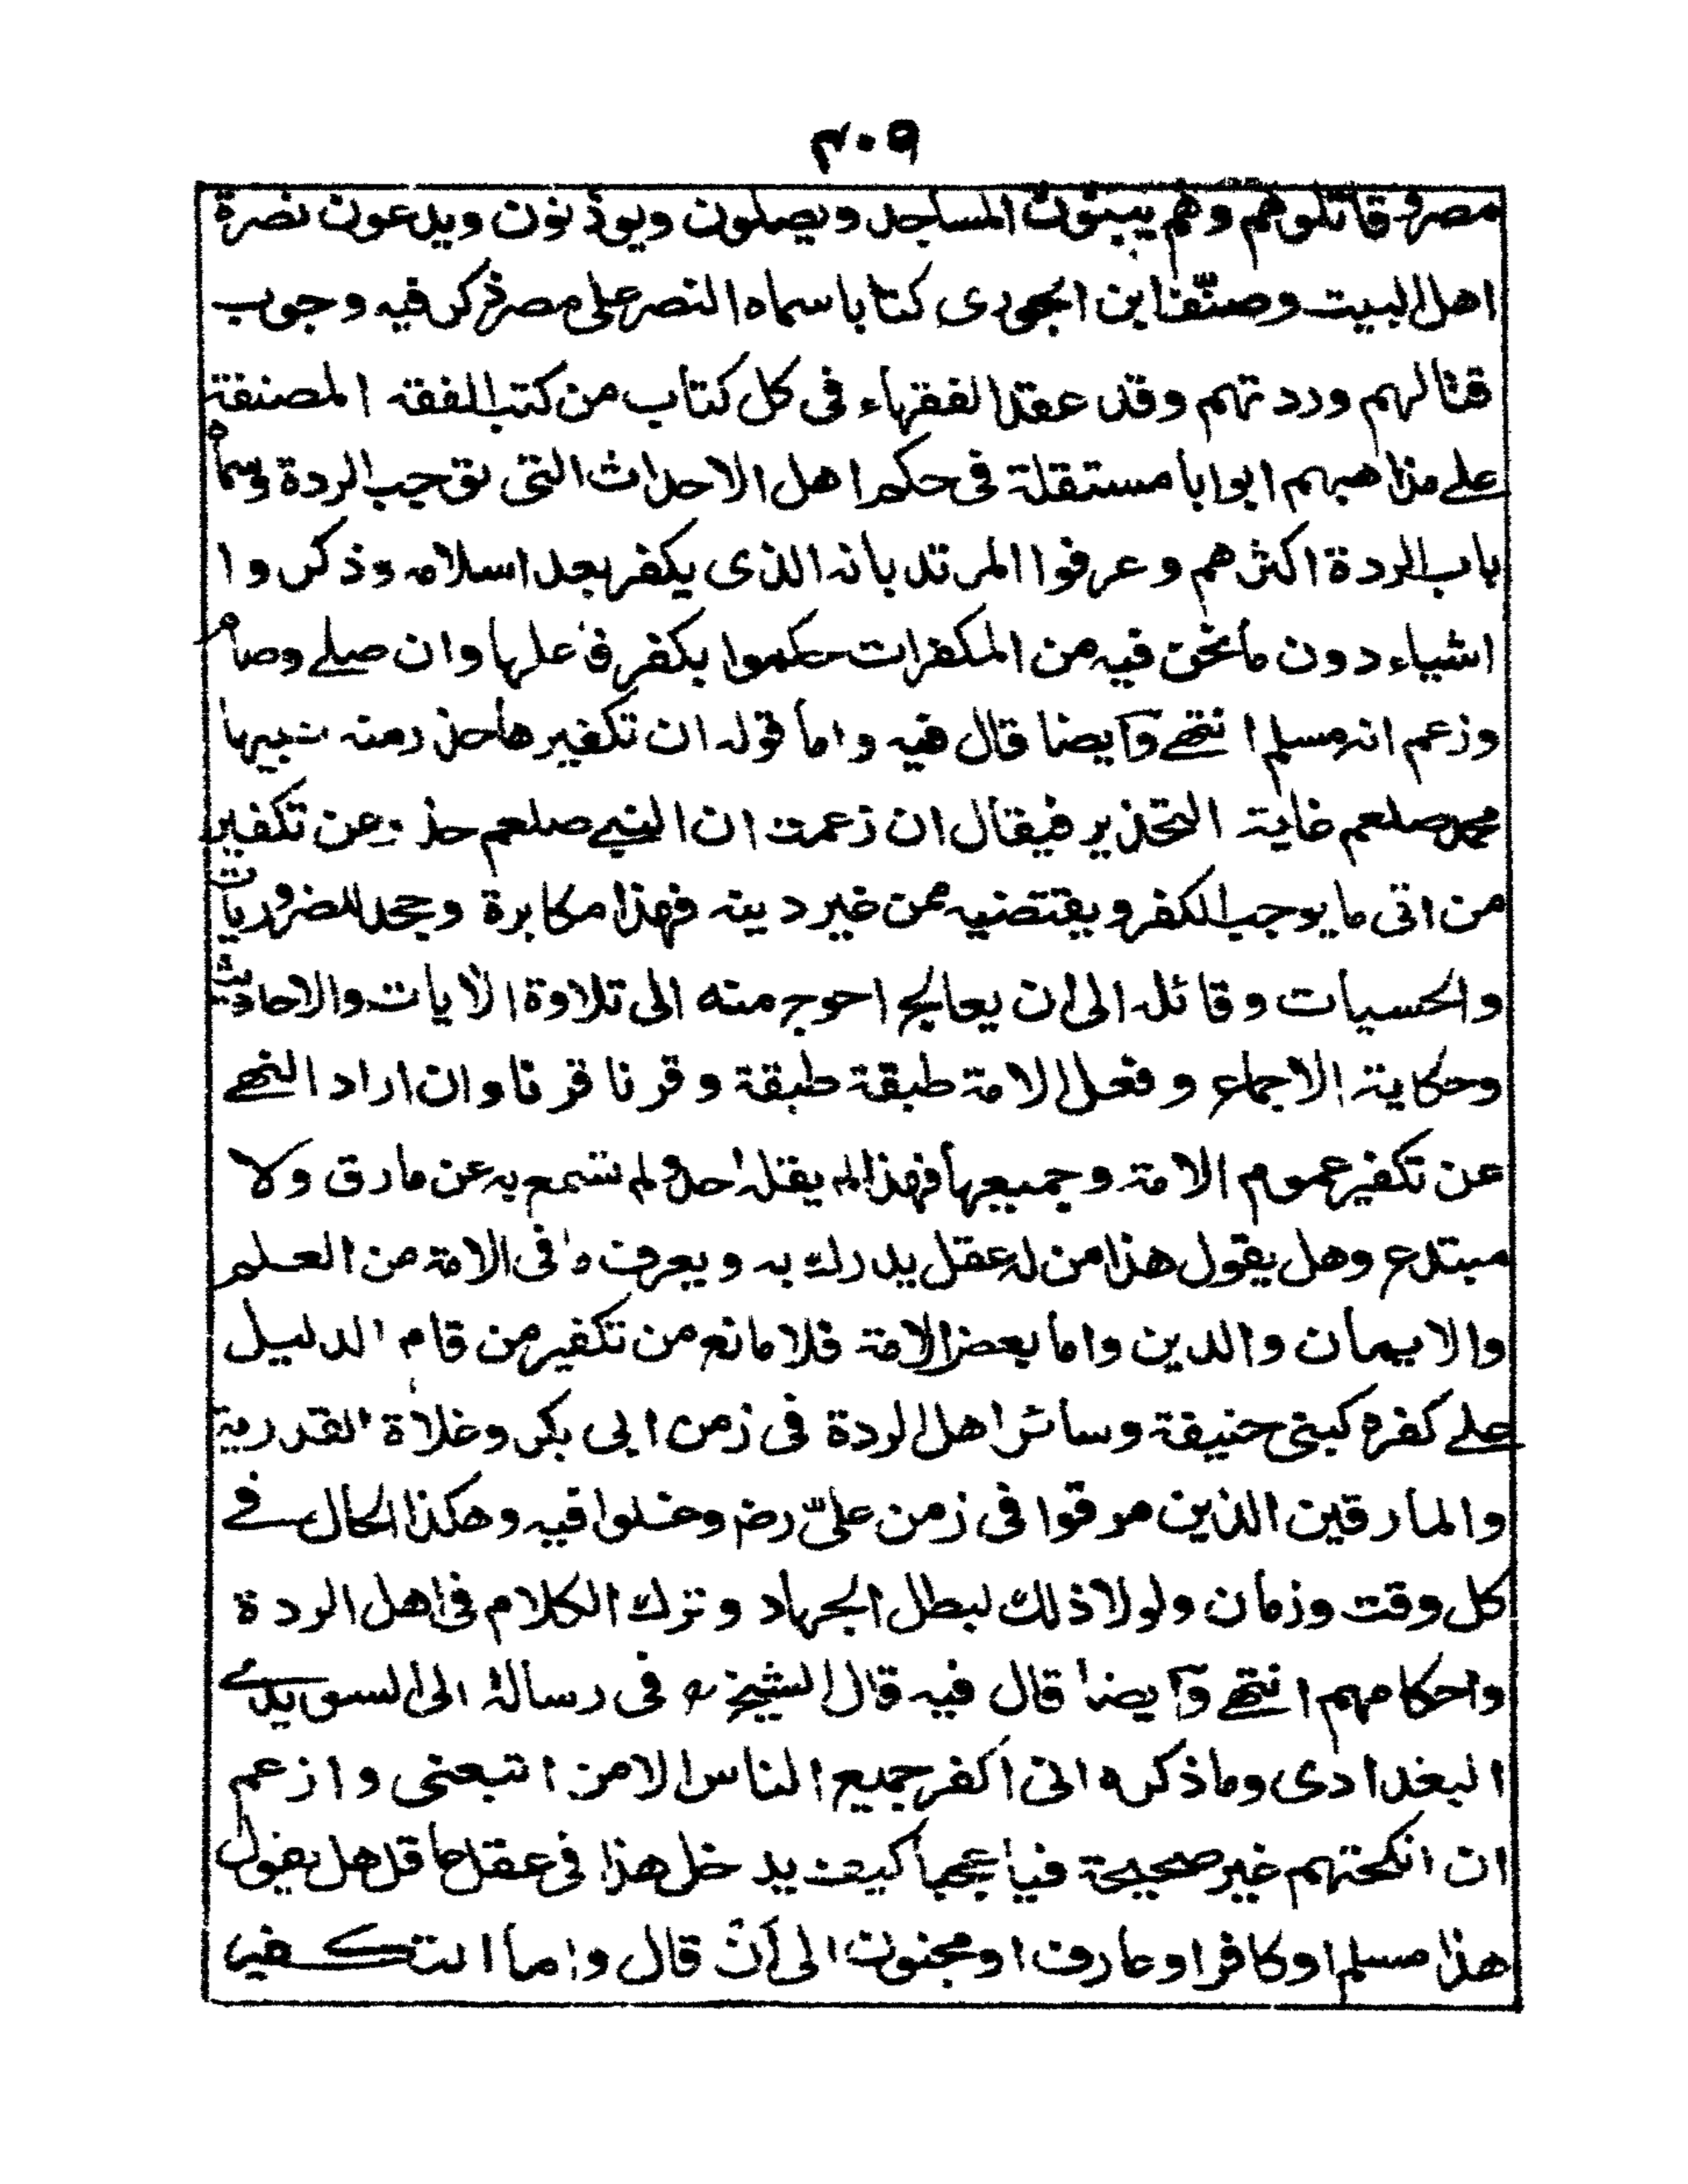 ٤٠٩
مصر وقاتلوهم وهم يبنون المساجد ويصلون ويوذنون ويدعون نصرة
اهل البيت وصنّف ابن الجوزى كتابا سماه النصر على مصر ذكر فيه وجوب
قتالهم وردتهم وقد عقد الفقهاء فى كل كتاب من كتب الفقه المصنفة
على مذاهبهم ابوابا مستقلة فى حكم اهل الاحداث التى توجب الردة وسماه
باب الردة اكثرهم وعرفوا المرتد بانه الذى يكفر بعد اسلامه وذكروا
اشياء دون ما نحن فيه من المكفرات حكموا بكفر فاعلها وان صلى وصام
وزعم انه مسلم انتهى وايضا قال فيه واما قوله ان تكفيرها حذر منه نبيها
محمد صلعم غاية التحذير فيقال ان زعمت ان النبى صلعم حذر عن تكفير
من اتى ما يوجب الكفر ويقتضيه ممن غير دينه فهذا مكابرة وجحد للضروريات
والحسيات وقائله الى ان يعالج احوج منه الى تلاوة الايات والاحاديث
وحكاية الاجماع وفعل الامة طبقة طبقة وقرنا قرنا وان اراد النهى
عن تكفير عموم الامة وجميعها فهذا لم يقله احد ولم نسمع به عن مارق ولا
مبتدع وهل يقول هذا من له عقل يدرك به ويعرف ما فى الامة من العلم
والايمان والدين واما بعض الامة فلا مانع من تكفير من قام الدليل
على كفره كبنى حنيفة وسائر اهل الردة فى زمن ابى بكر وغلاة القدرية
والمارقين الذين مرقوا فى زمن علىّ رض وغلوا فيه وهكذا الحال فى
كل وقت وزمان ولولا ذلك لبطل الجهاد وترك الكلام فى اهل الردة
واحكامهم انتهى وايضا قال فيه قال الشيخ فى رسالة الى السويدى
البغدادى وما ذكره انى اكفر جميع الناس الا من اتبعنى وازعم
ان انكحتهم غير صحيحة فيا عجبا كيف يدخل هذا فى عقل عاقل هل يقول
هذا مسلم او كافر او عارف او مجنون الى أن قال واما التكفير